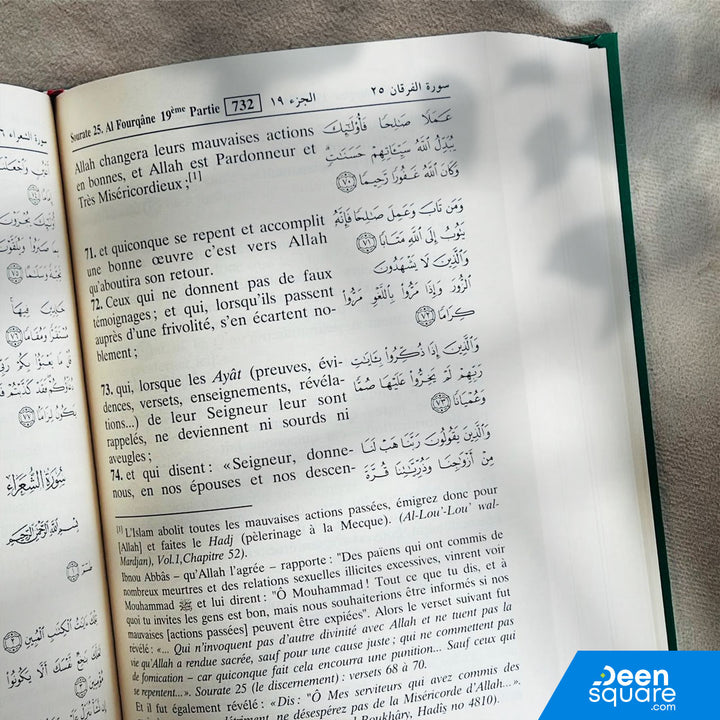 Sourate 25. Al Fourqâne 19ème Partie 732 الجزء ١٩ سورة الفرقان ٢٥
Allah changera leurs mauvaises actions
en bonnes, et Allah est Pardonneur et
Très Miséricordieux ;[1]
71. et quiconque se repent et accomplit
une bonne œuvre c'est vers Allah
qu'aboutira son retour.
72. Ceux qui ne donnent pas de faux
témoignages ; et qui, lorsqu'ils passent
auprès d'une frivolité, s'en écartent no-
blement ;
73. qui, lorsque les Ayât (preuves, évi-
dences, versets, enseignements, révéla-
tions...) de leur Seigneur leur sont
rappelés, ne deviennent ni sourds ni
aveugles ;
74. et qui disent : «Seigneur, donne-
nous, en nos épouses et nos descen-
عَمَلًا صَـٰلِحًا فَأُو۟لَـٰٓئِكَ
يُبَدِّلُ ٱللَّهُ سَيِّـَٔاتِهِمْ حَسَنَـٰتٍ ۗ
وَكَانَ ٱللَّهُ غَفُورًا رَّحِيمًا ٧٠
وَمَن تَابَ وَعَمِلَ صَـٰلِحًا فَإِنَّهُۥ
يَتُوبُ إِلَى ٱللَّهِ مَتَابًا ٧١
وَٱلَّذِينَ لَا يَشْهَدُونَ
ٱلزُّورَ وَإِذَا مَرُّوا۟ بِٱللَّغْوِ مَرُّوا۟
كِرَامًا ٧٢
وَٱلَّذِينَ إِذَا ذُكِّرُوا۟ بِـَٔايَـٰتِ
رَبِّهِمْ لَمْ يَخِرُّوا۟ عَلَيْهَا صُمًّا
وَعُمْيَانًا ٧٣
وَٱلَّذِينَ يَقُولُونَ رَبَّنَا هَبْ لَنَا
مِنْ أَزْوَٰجِنَا وَذُرِّيَّـٰتِنَا قُرَّةَ
[1] L'Islam abolit toutes les mauvaises actions passées, émigrez donc pour
[Allah] et faites le Hadj (pèlerinage à la Mecque). (Al-Lou'-Lou' wal-
Mardjan), Vol.1,Chapitre 52).
Ibnou Abbâs – qu'Allah l'agrée – rapporte : "Des païens qui ont commis de
nombreux meurtres et des relations sexuelles illicites excessives, vinrent voir
Mouhammad ﷺ et lui dirent : "Ô Mouhammad ! Tout ce que tu dis, et à
quoi tu invites les gens est bon, mais nous souhaiterions être informés si nos
mauvaises [actions passées] peuvent être expiées". Alors le verset suivant fut
révélé : «... Qui n'invoquent pas d'autre divinité avec Allah et ne tuent pas la
vie qu'Allah a rendue sacrée, sauf pour une cause juste ; qui ne commettent pas
de fornication – car quiconque fait cela encourra une punition... Sauf ceux qui
se repentent...». Sourate 25 (le discernement) : versets 68 à 70.
Et il fut également révélé : «Dis : "Ô Mes serviteurs qui avez commis des
ne désespérez pas de la Miséricorde d'Allah...».
Boukhâry, Hadîs no 4810).
سُورَةُ الشُّعَرَاءِ
بِسْمِ ٱللَّهِ ٱلرَّحْمَـٰنِ ٱلرَّحِيمِ
Deen
square
.com